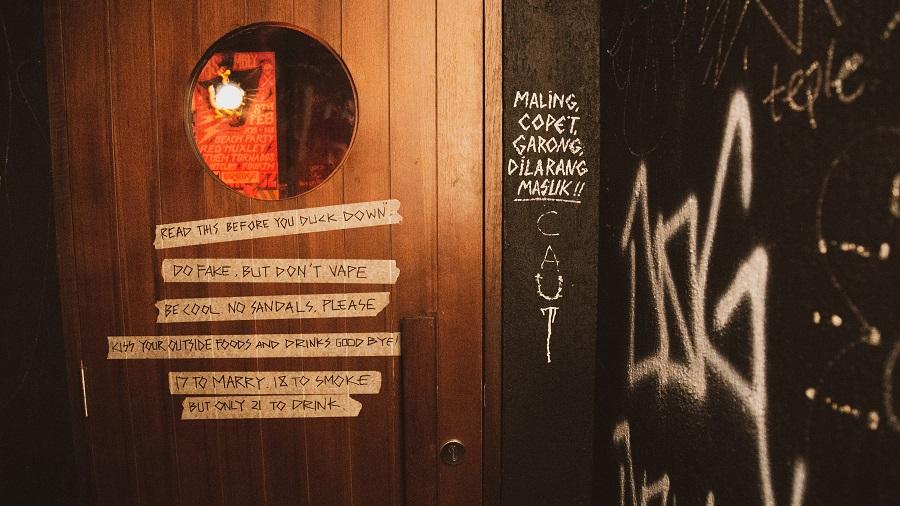 FEB
BEACH PARTY
RED HUXLEY
THEM TORNADOS
READ THIS BEFORE YOU DUCK DOWN".
DO FAKE, BUT DON'T VAPE
BE COOL. NO SANDALS, PLEASE
KISS YOUR OUTSIDE FOODS AND DRINKS GOOD BYE!
17 TO MARRY, 18 TO SMOKE
BUT ONLY 21 TO DRINK.
MALING,
COPET,
GARONG,
DILARANG
MASUK!!
C
A
U
T
teple